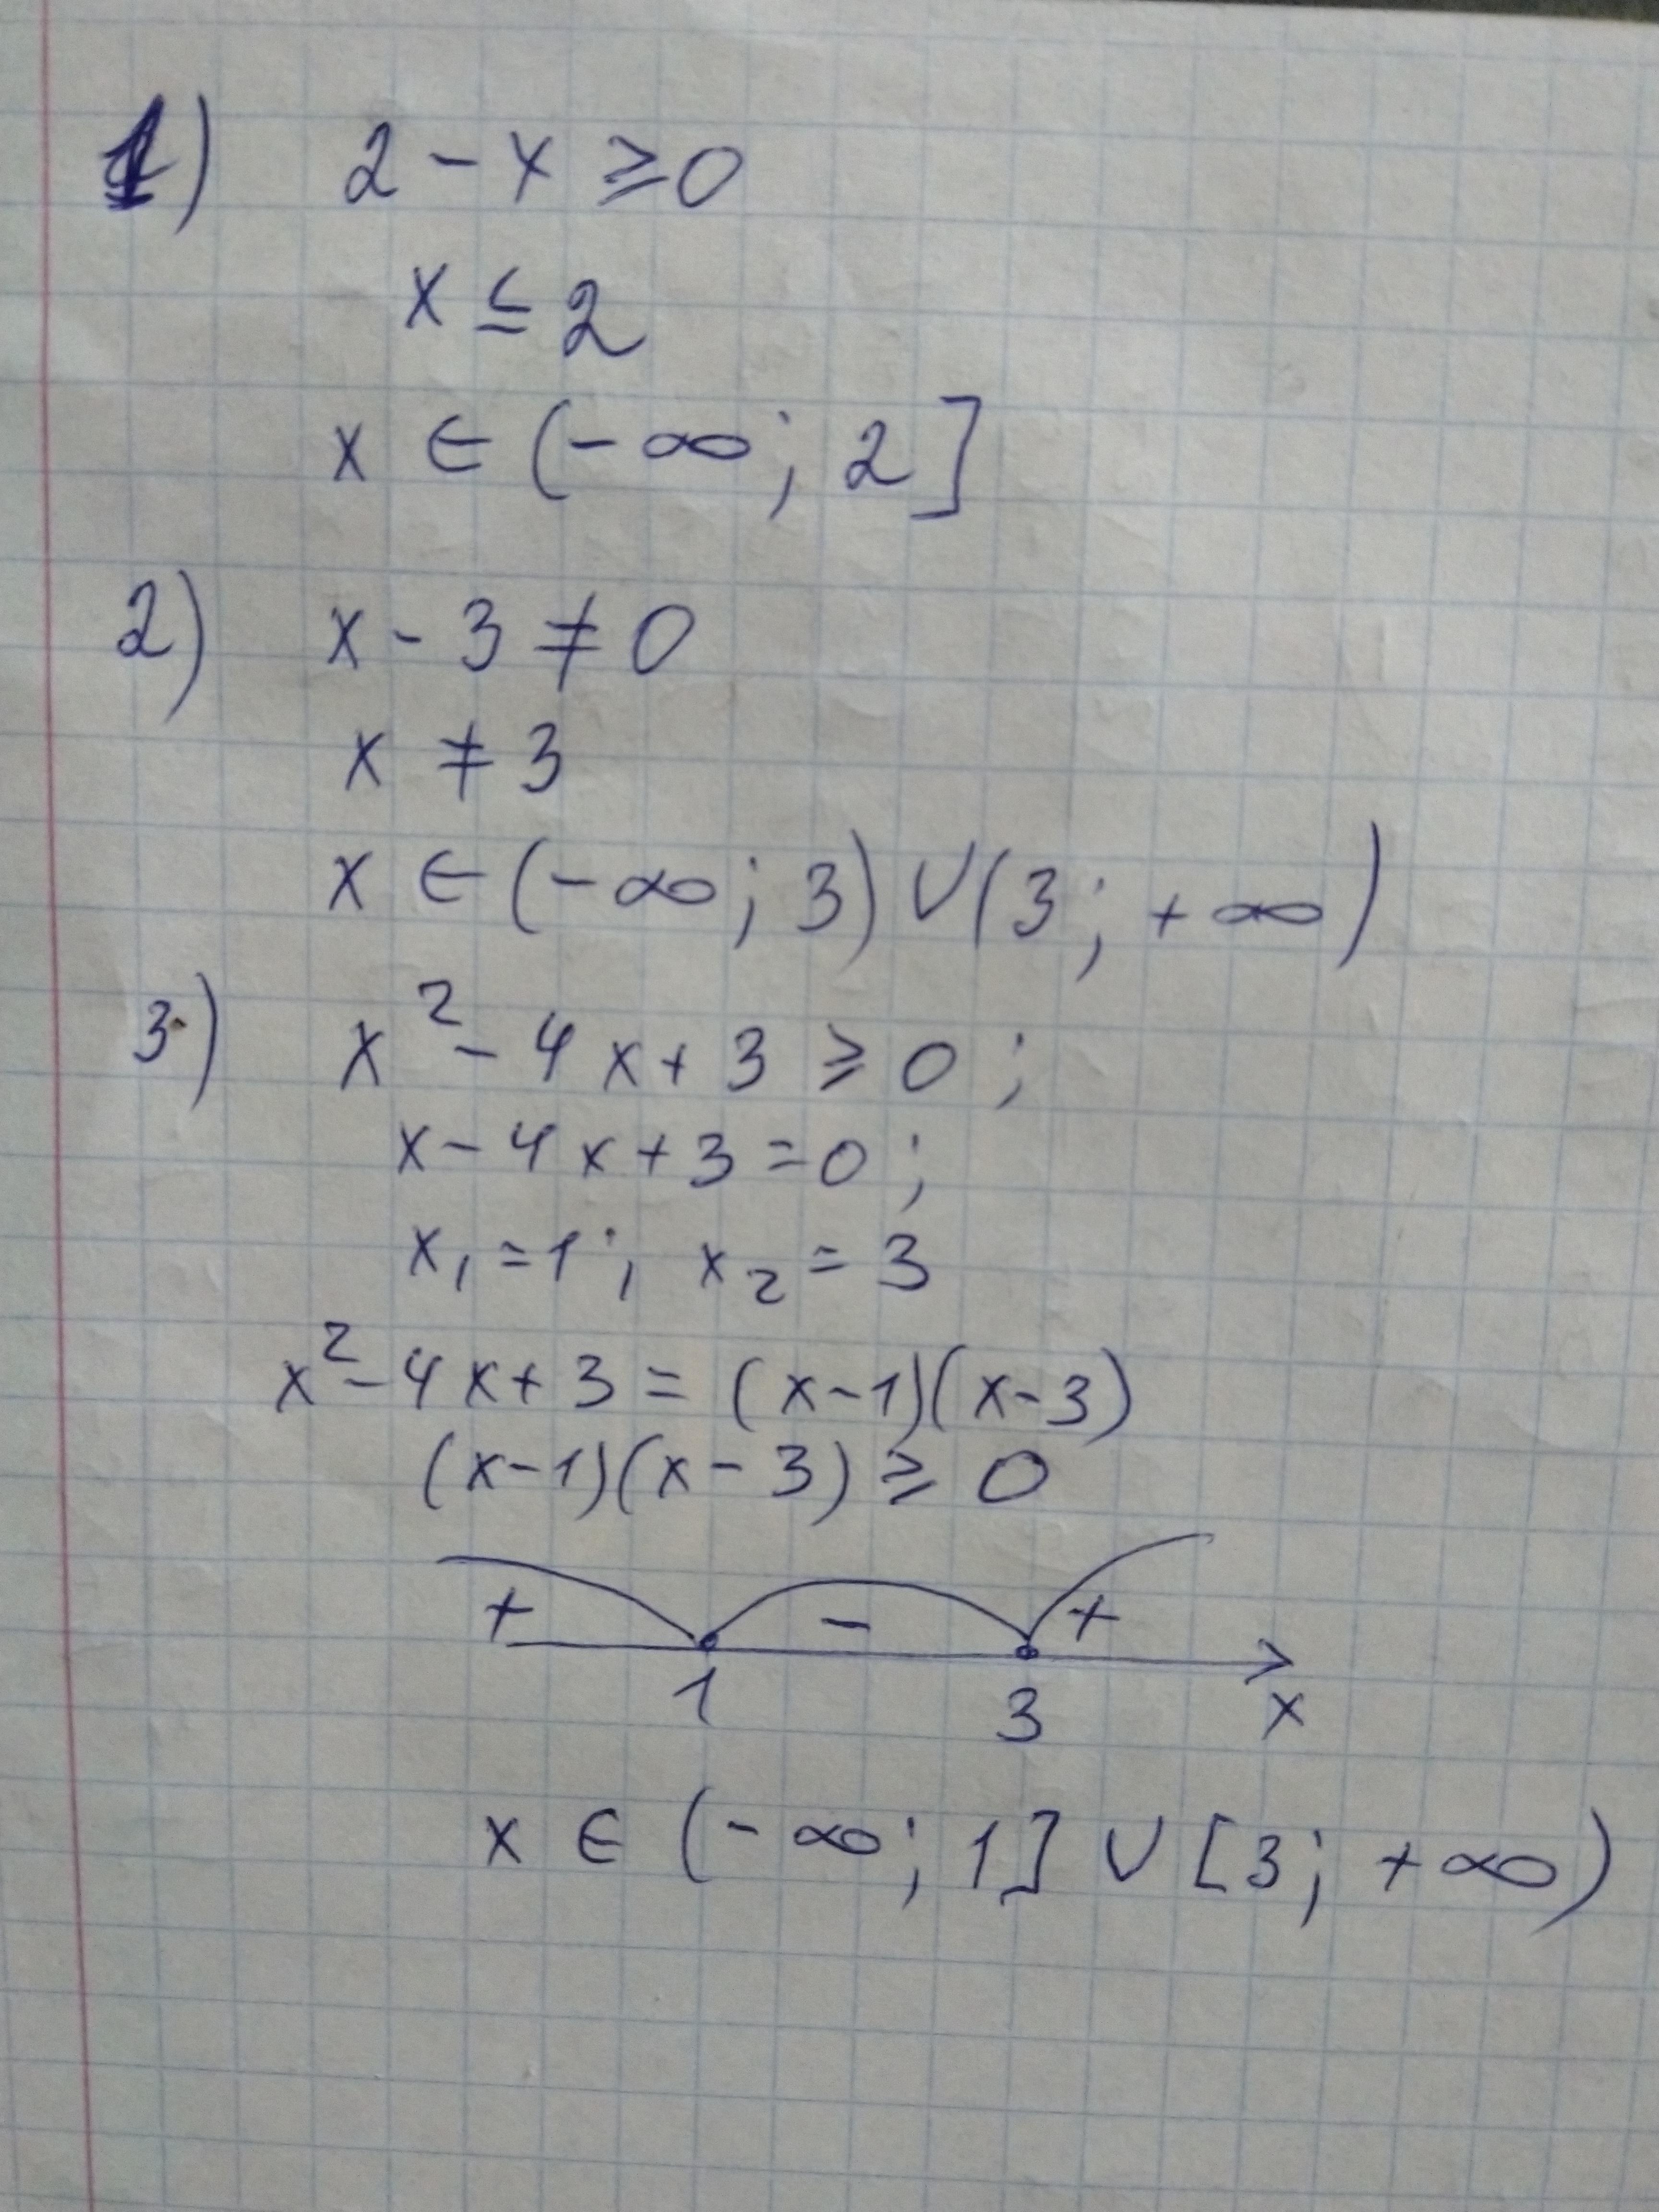 1) 2 - x ⩾ 0
x ≤ 2
x ∈ (-∞; 2]
2) x - 3 ≠ 0
x ≠ 3
x ∈ (-∞; 3) ∪ (3; +∞)
3) x² - 4x + 3 ⩾ 0;
x - 4x + 3 = 0;
x₁ = 1; x₂ = 3
x² - 4x + 3 = (x-1)(x-3)
(x-1)(x-3) ⩾ 0
+ - +
1 3 x
x ∈ (-∞; 1] ∪ [3; +∞)